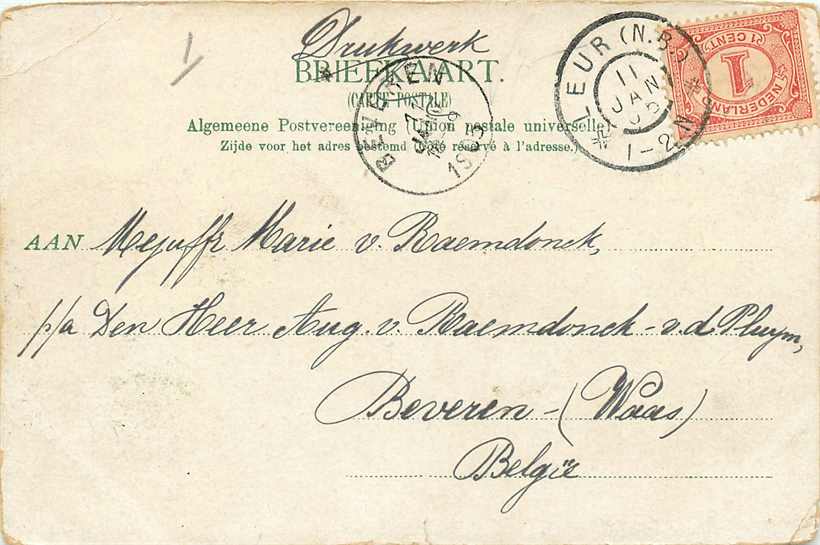 1
Drukwerk
BRIEFKAART.
(CARTE POSTALE)
Algemeene Postvereeniging (Union postale universelle)
Zijde voor het adres bestemd (Côté réservé à l'adresse.)
BEVEREN
1903
LEUR (N.B.)
11
JAN
03
1-2N
NEDERLAND
1 CENT
1
AAN Mejuffr Marie v. Raemdonck,
p/a Den Heer Aug. v. Raemdonck-v.d. Pluym,
Beveren-(Waas)
België